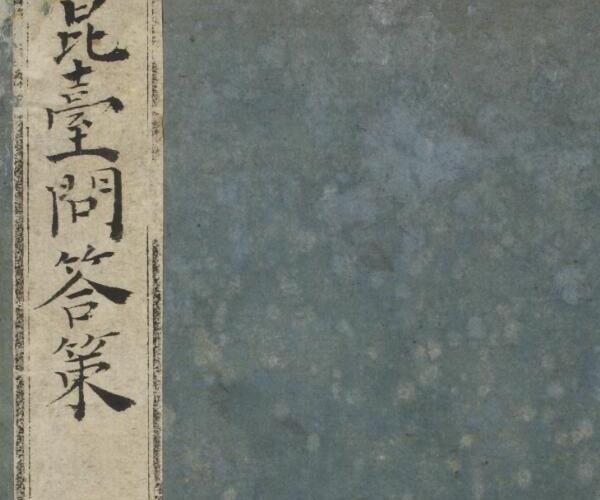 昆臺問答策